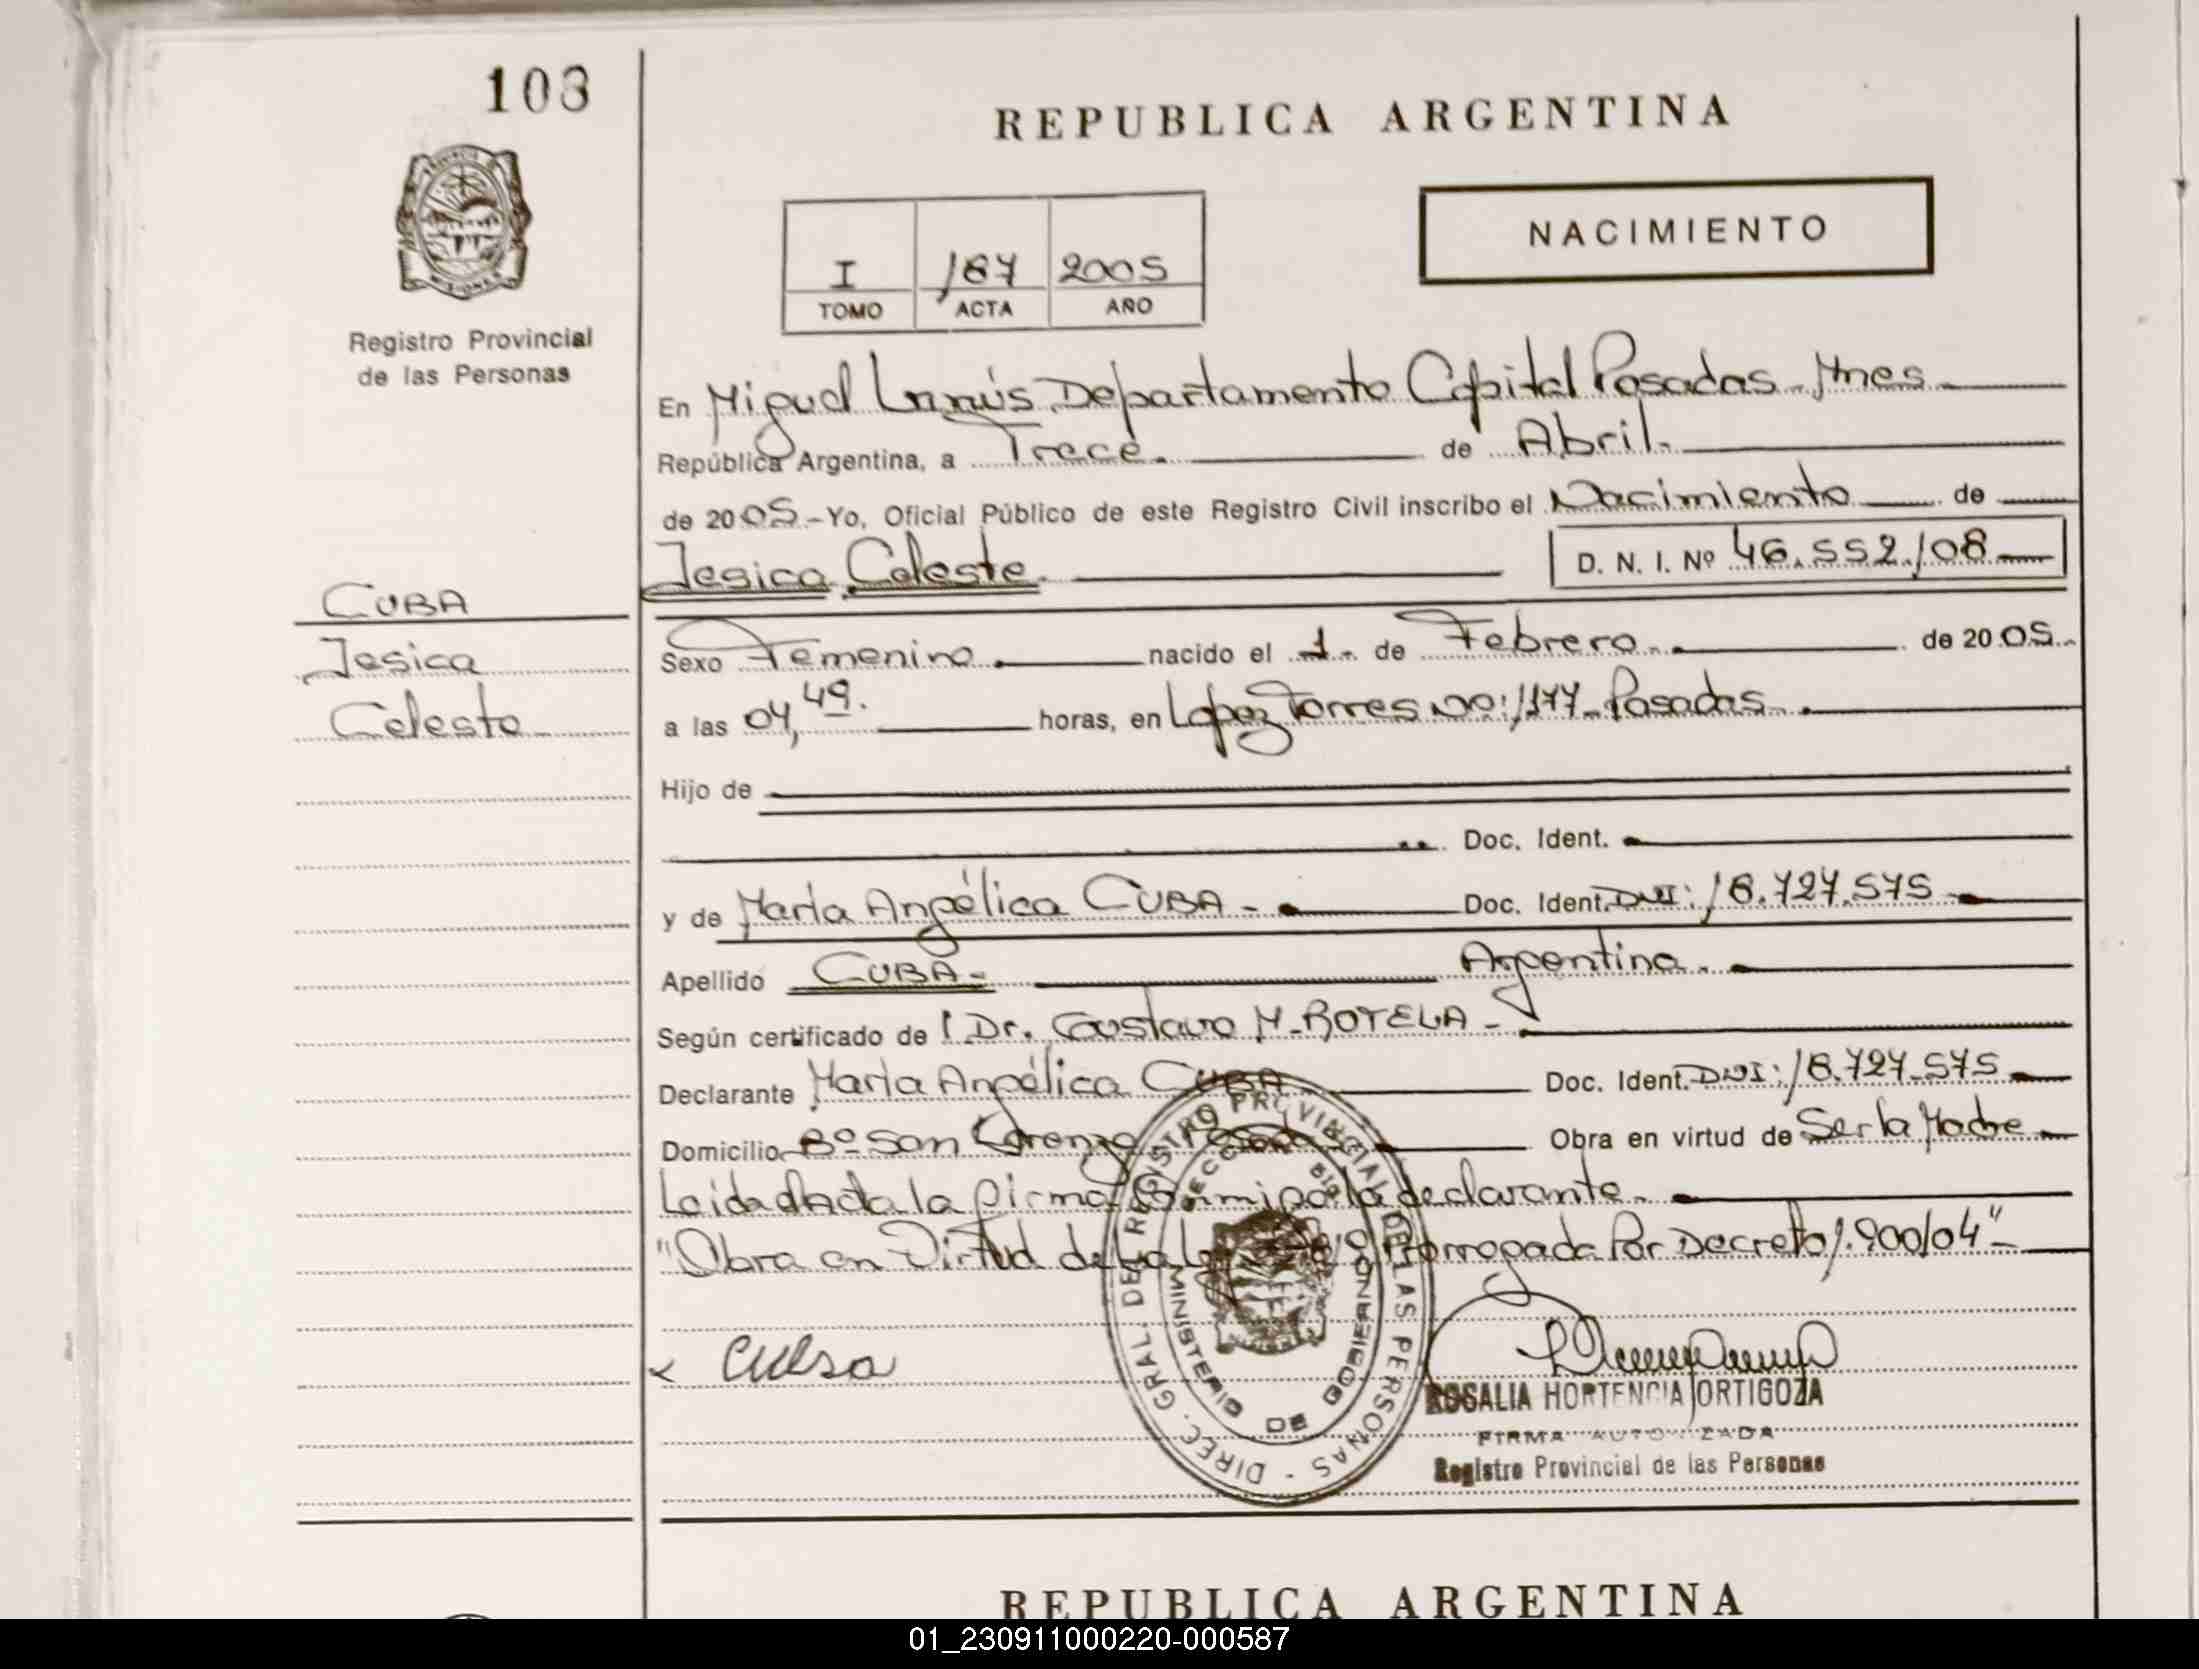 103
REPUBLICA ARGENTINA
NACIMIENTO
I 187 2005
TOMO ACTA AÑO
Registro Provincial
de las Personas
En Miguel Lanús Departamento Capital Posadas - Mnes
República Argentina, a Trece de Abril.
de 2005 - Yo, Oficial Público de este Registro Civil inscribo el Nacimiento de
Jesica Celeste D. N. I. Nº 46.552.108
CUBA
Jesica
Celeste
Sexo Femenino nacido el 1 de Febrero de 2005
a las 04,49. horas, en Lopez Torres No: 1177 - Posadas
Hijo de
Doc. Ident.
y de María Angélica CUBA - Doc. Ident. DNI: 18.727.575
Apellido CUBA - Argentina
Según certificado de l Dr. Gustavo M. BOTELA -
Declarante María Angélica CUBA Doc. Ident. DNI: 18.727.575
Domicilio Bº San Lorenzo Posadas Obra en virtud de Ser la Madre
Leida el Acta la firma conmigo la declarante
"Obra en Virtud de La Ley Prorrogada Por Decreto 1.900/04"
Cuba
DIREC. GRAL. DE REGISTRO PROVINCIAL DE LAS PERSONAS
MINISTERIO DE GOBIERNO
ROSALIA HORTENCIA ORTIGOZA
FIRMA AUTORIZADA
Registro Provincial de las Personas
REPUBLICA ARGENTINA
01_230911000220-000587